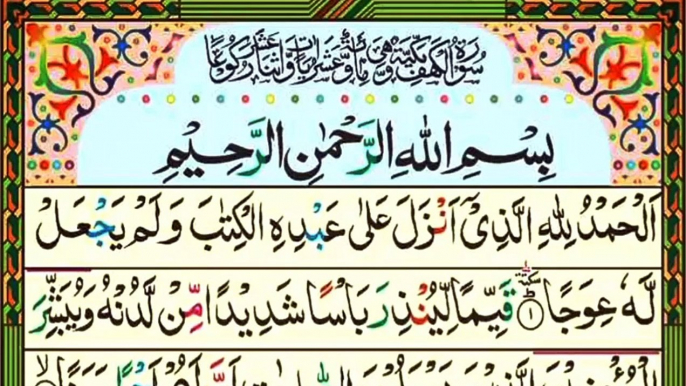 سُوْرَةُ الْكَهْفِ مَكِّيَّةٌ وَّهِىَ مِائَةٌ وَّعَشْرُ اٰيَاتٍ وَّاثْنَا عَشَرَ رُكُوْعًا
بِسْمِ اللهِ الرَّحْمٰنِ الرَّحِيْمِ
اَلْحَمْدُ لِلّٰهِ الَّذِىْٓ اَنْزَلَ عَلٰى عَبْدِهِ الْكِتٰبَ وَلَمْ يَجْعَلْ
لَّهٗ عِوَجًا ۜ ۝۱ قَيِّمًا لِّيُنْذِرَ بَاْسًا شَدِيْدًا مِّنْ لَّدُنْهُ وَيُبَشِّرَ